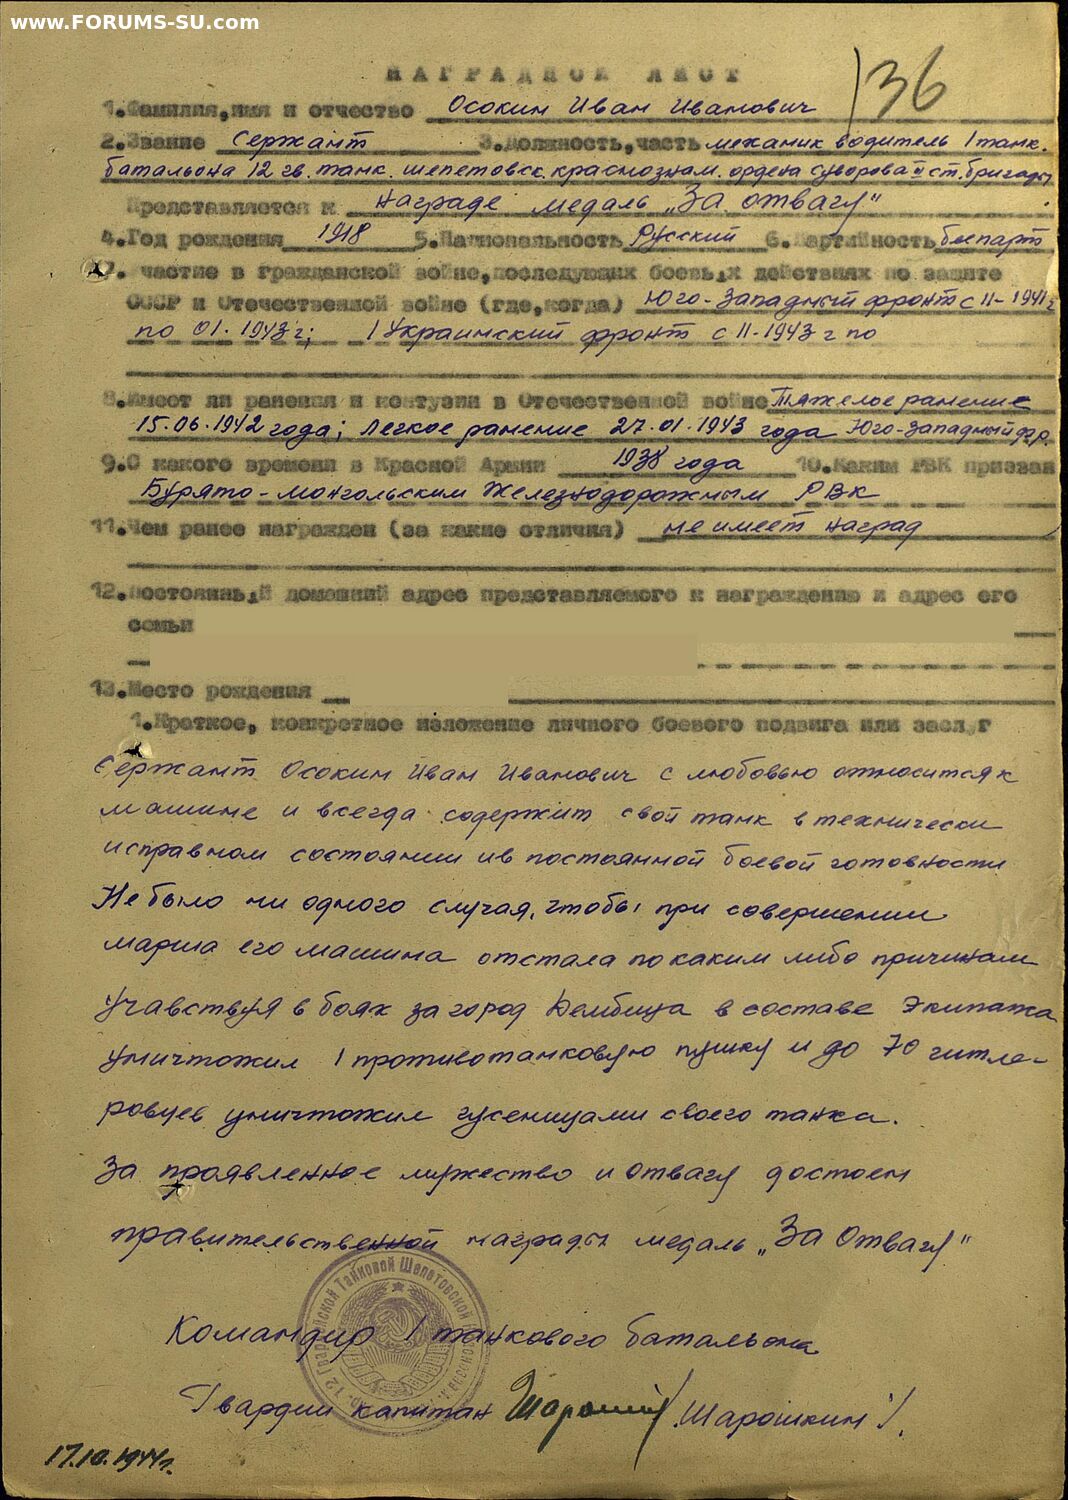 www.FORUMS-SU.com
НАГРАДНОЙ ЛИСТ
136
1.Фамилия,имя и отчество Осокин Иван Иванович
2.Звание Сержант 3.Должность,часть механик водитель 1 танк.
батальона 12 гв. танк. шепетовск. краснознам. ордена суворова II ст. бригады
Представляется к награде медаль „За отвагу"
4.Год рождения 1918 5.Национальность Русский 6.Партийность беспарт
7. участие в гражданской войне,последующих боевых действиях по защите
СССР и Отечественной войне (где,когда) Юго-Западный фронт с 11-1941 г
по 01.1943 г; 1 Украинский фронт с 11-1943 г по
8.Имеет ли ранения и контузии в Отечественной войне Тяжелое ранение
15.06.1942 года; Легкое ранение 27.01.1943 года Юго-Западный фр.
9.С какого времени в Красной Армии 1938 года 10.Каким РВК призван
Бурято-монгольским Железнодорожным РВК
11.Чем ранее награжден (за какие отличия) не имеет наград
12.Постоянный домашний адрес представляемого к награждению и адрес его
семьи
13.Место рождения
1.Краткое, конкретное изложение личного боевого подвига или заслуг
Сержант Осокин Иван Иванович с любовью относится к
машине и всегда содержит свой танк в технически
исправном состоянии и в постоянной боевой готовности
Не было ни одного случая, чтобы при совершении
марша его машина отстала по каким либо причинам
Учавствуя в боях за город Дембица в составе Экипажа
уничтожил 1 противотанковую пушку и до 70 гитле-
ровцев уничтожил гусеницами своего танка.
За проявленное мужество и отвагу достоен
правительственной награды медаль „За Отвагу"
Командир 1 танкового батальона
Гвардии капитан /Шарошкин/.
17.10.1944г.